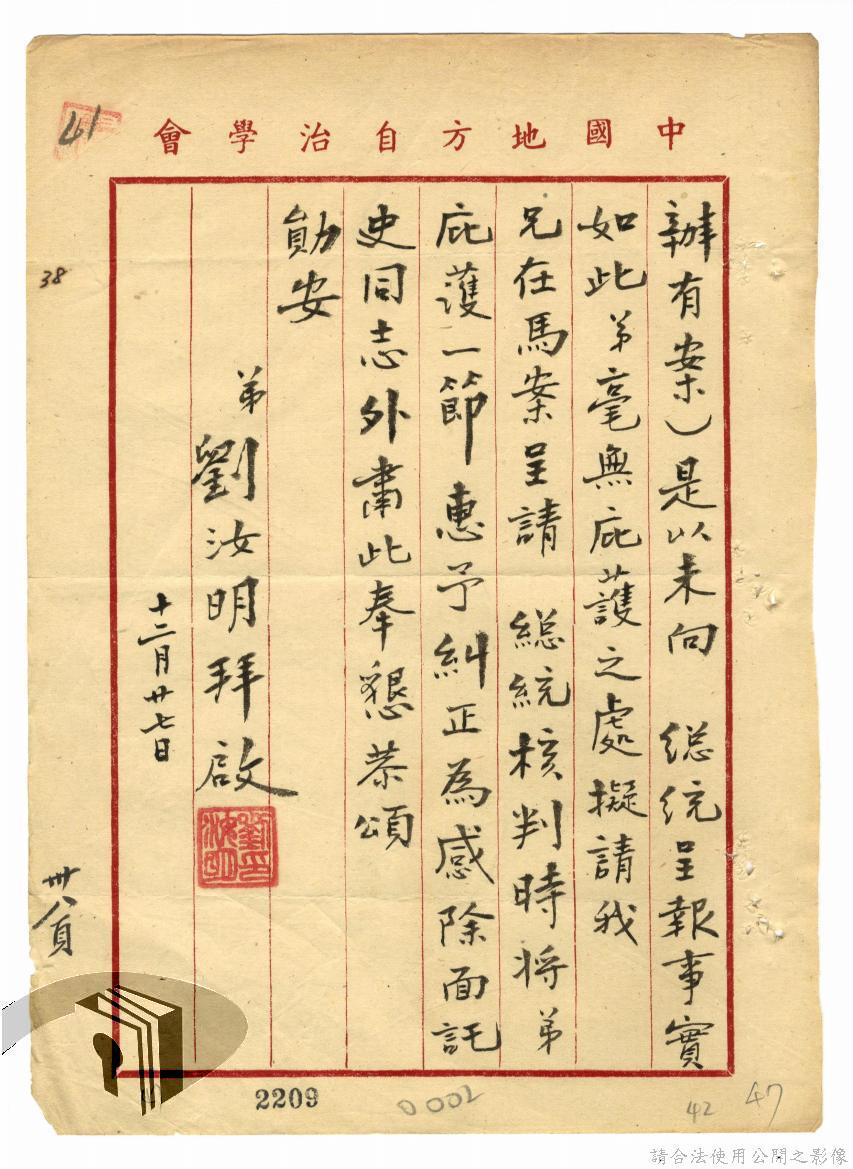 中國地方自治學會
辦有案）是以未向　總統呈報事實
如此弟毫無庇護之處擬請我
兄在馬案呈請　總統核判時將弟
庇護一節惠予糾正為感除面託
史同志外肅此奉懇恭頌
勛安
弟劉汝明拜啟
劉汝明印
十二月廿七日
41
38
卅八頁
2209
0002
42
47
請合法使用公開之影像